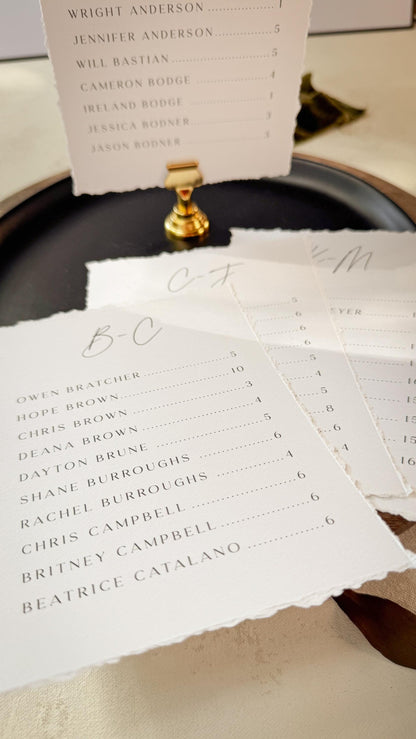 WRIGHT ANDERSON ........ 1
JENNIFER ANDERSON ........ 5
WILL BASTIAN ........ 5
CAMERON BODGE ........ 4
IRELAND BODGE ........ 1
JESSICA BODNER ........ 3
JASON BODNER ........ 3
B-C
OWEN BRATCHER ........ 5
HOPE BROWN ........ 10
CHRIS BROWN ........ 3
DEANA BROWN ........ 4
DAYTON BRUNE ........ 5
SHANE BURROUGHS ........ 6
RACHEL BURROUGHS ........ 4
CHRIS CAMPBELL ........ 6
BRITNEY CAMPBELL ........ 6
BEATRICE CATALANO ........ 6
C-F
5
6
6
5
4
5
8
6
4
-M
EYER
16
15
15
16